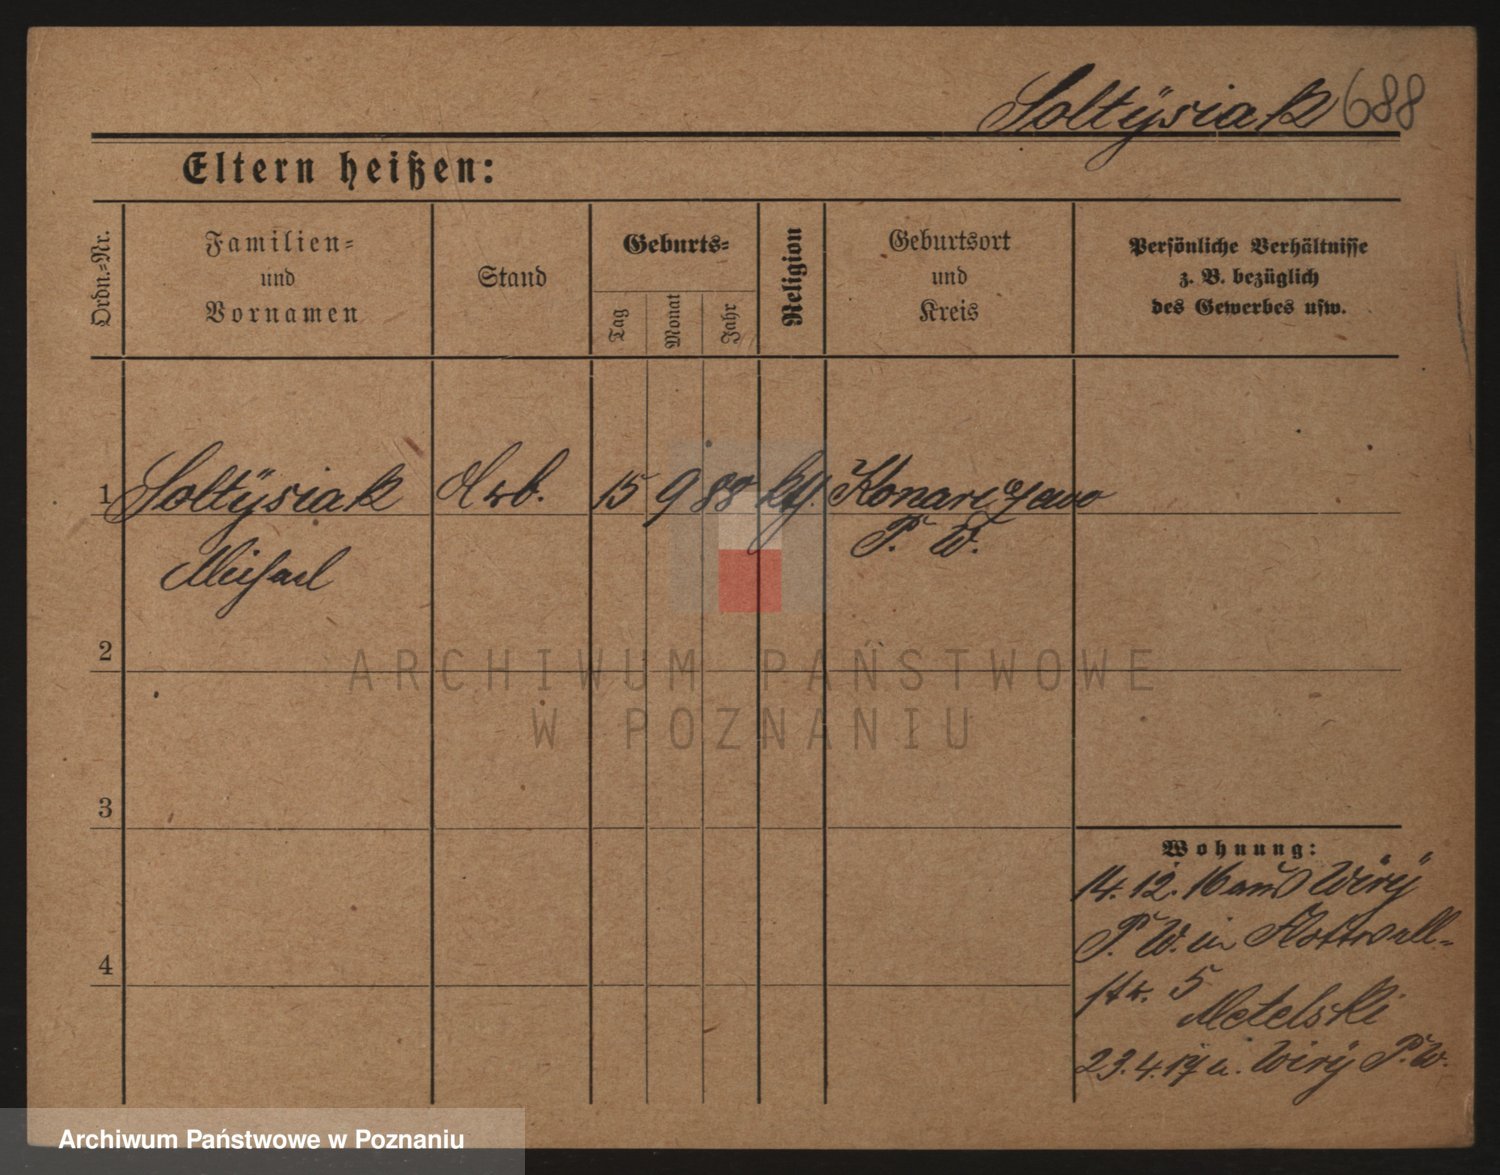 Soltÿsiak 688
Eltern heißen:
Ordn.-Nr.
Familien-
und
Vornamen
Stand
Geburts-
Tag
Monat
Jahr
Religion
Geburtsort
und
Kreis
Persönliche Verhältnisse
z. B. bezüglich
des Gewerbes usw.
1 Soltÿsiak Arb. 15 9 88 kth.
Michael P. W.
2
3
4
Wohnung:
14. 12. 16 aus Wirÿ
P. W. in Flottwell-
str. 5
Metelski
23. 4. 17 n. Wirÿ P. W.
ARCHIWUM PAŃSTWOWE
W POZNANIU
Archiwum Państwowe w Poznaniu